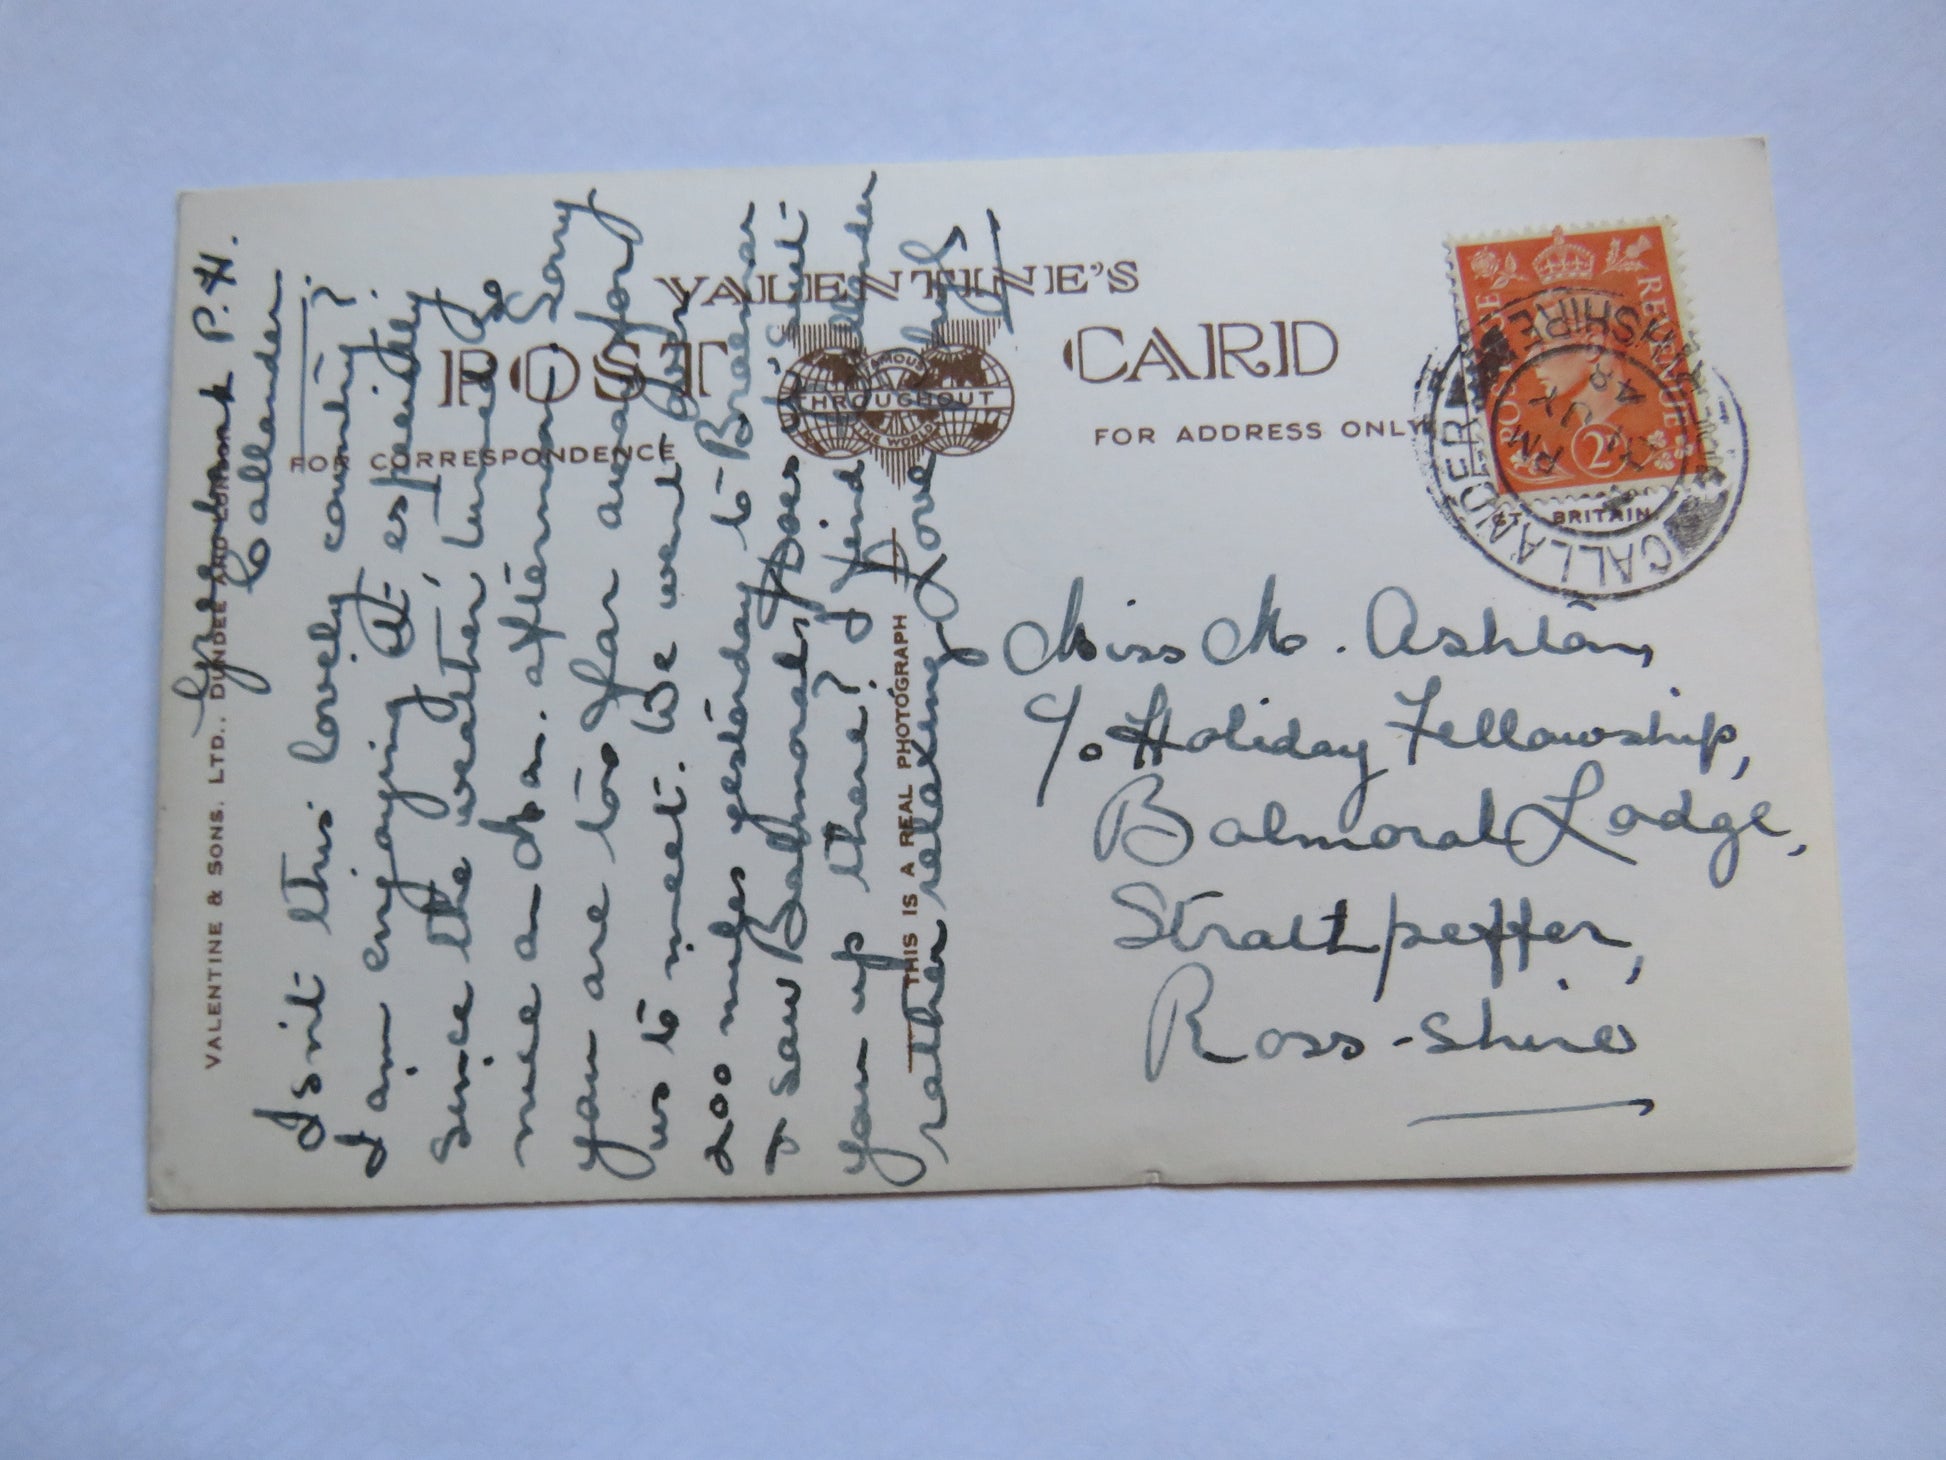 VALENTINE'S
POST CARD
FAMOUS
THROUGHOUT
THE WORLD
FOR CORRESPONDENCE
FOR ADDRESS ONLY
VALENTINE & SONS. LTD., DUNDEE AND LONDON
GT. BRITAIN.
THIS IS A REAL PHOTOGRAPH
P.H.
Callander
Isn't this lovely country?
I am enjoying it especially
since the weather turned
nice on afternoon. Sorry
you are too far away for
us to meet. We went
200 miles yesterday to Braemar
& saw Balmoral. Does it suit
you up there? I find Callander
rather relaxing. Love
Miss M. Ashton,
c/o Holiday Fellowship,
Balmoral Lodge,
Strathpeffer,
Ross-shire
POSTAGE
REVENUE
2D
CALLANDER
PERTHSHIRE
PM